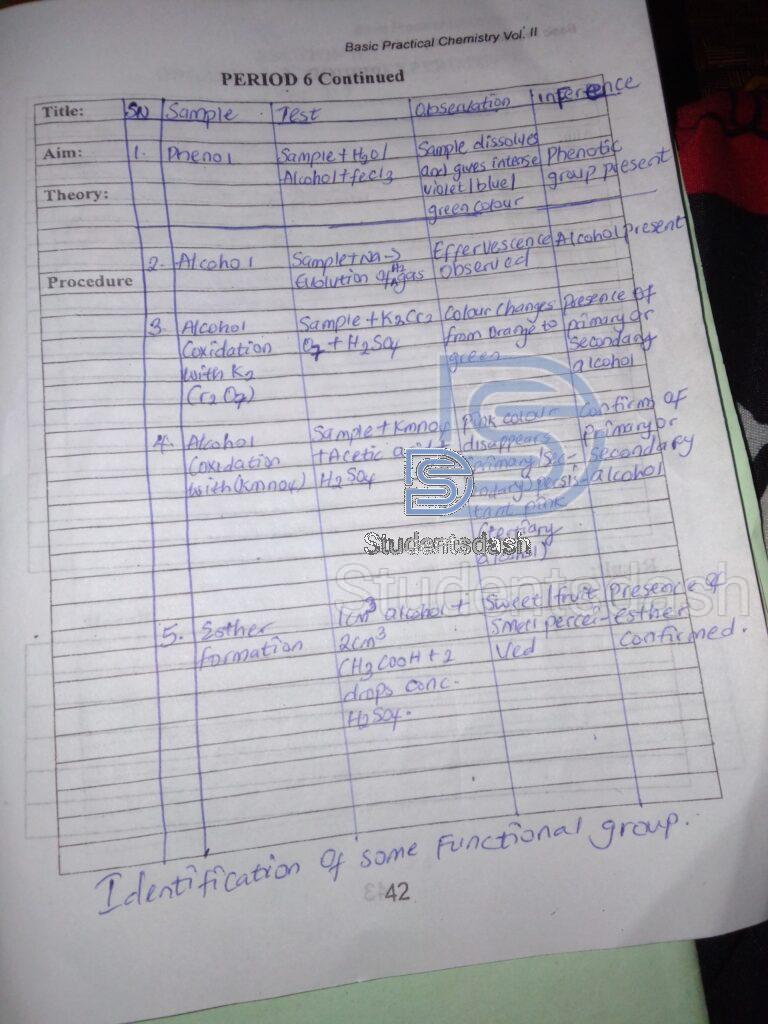 Basic Practical Chemistry Vol. II
PERIOD 6 Continued
Title:
SN
Sample
Test
Observation
Inference
Aim:
1.
Phenol
Sample + H2O/
Alcohol + fecl3
Sample dissolves
and gives intense
violet/blue/
green colour
Phenotic
group present
Theory:
2.
Alcohol
Sample + Na →
Evolution of H2 gas
Effervescence
Observed
Alcohol present
Procedure
3.
Alcohol
Coxidation
with K2
(Cr2O7)
Sample + K2Cr2
O7 + H2SO4
Colour changes
from orange to
green
Presence of
primary or
Secondary
alcohol
4.
Alcohol
Coxidation
with (KMnO4)
Sample + KmnO4
+ Acetic acid +
H2SO4
Pink colour
disappears
primary/sec-
ondary persis-
tant pink
(tertiary
alcohol)
Confirm of
Primary or
Secondary
alcohol
5.
Esther
formation
1cm3 alcohol +
2cm3
CH3COOH + 2
drops conc.
H2SO4.
Sweet/fruit
Smell percei-
ved
Presence of
esther
confirmed.
Studentsdash
Studentsdash
Identification Of some Functional group.
42